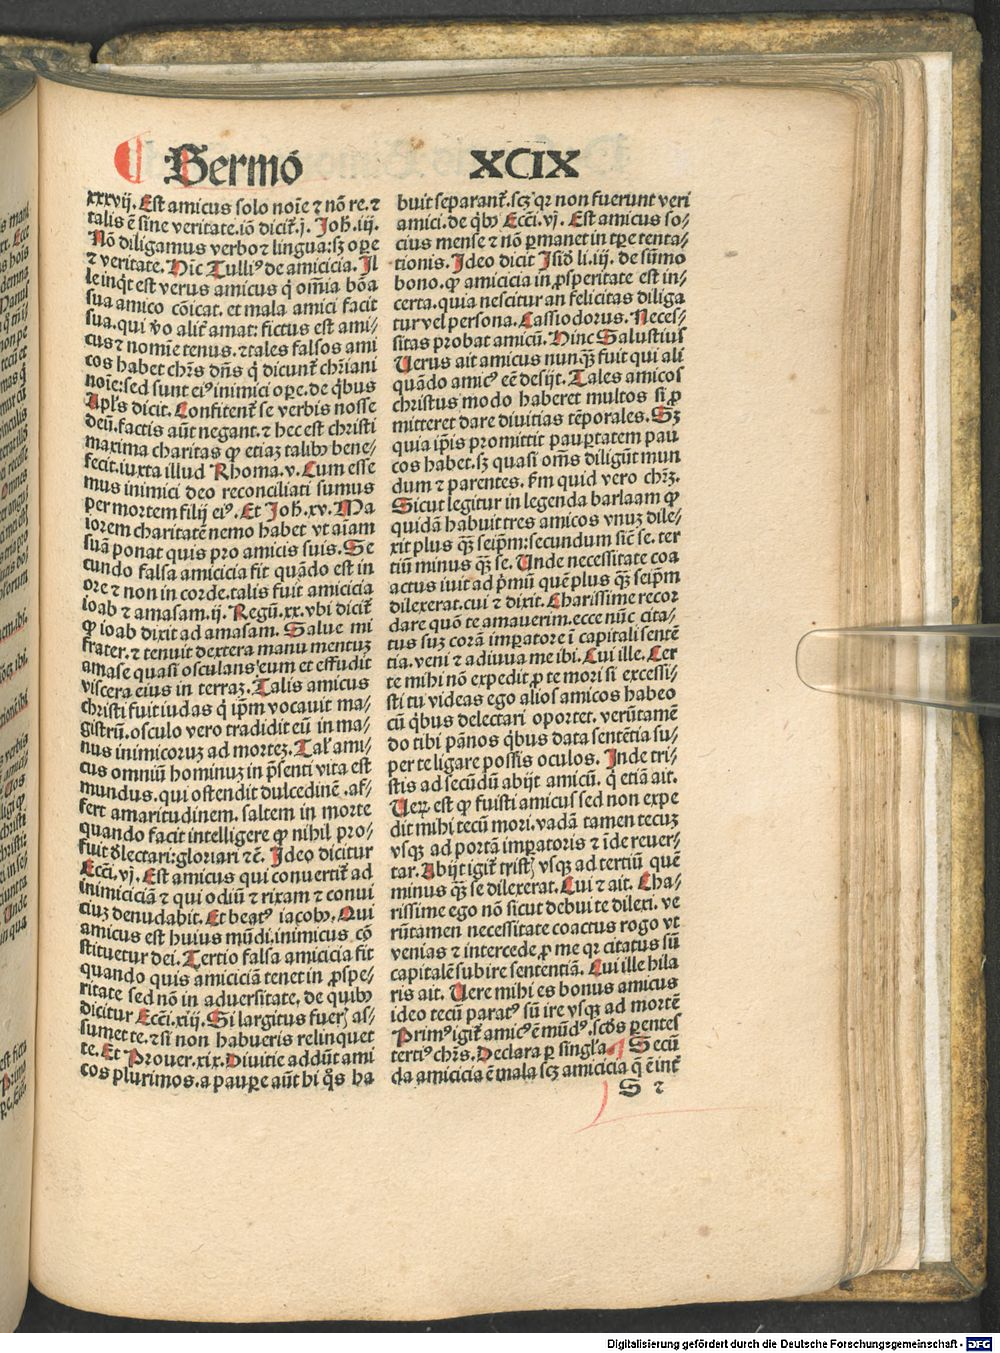 Sermo XCIX
xxxvij. Est amicus solo noīe ⁊ nō re. ⁊
talis ē sine veritate. iō dicit̄. j. Joh̄. iij.
Nō diligamus verbo ⁊ lingua: sꝫ oꝑe
⁊ veritate. Hīc Tulliꝰ de amicicia. Il
le inqͥt est verus amicus q̇ om̄ia bōa
sua amico cōicat. et mala amici facit
sua. qui v̄o alit̄ amat: fictus est ami⸗
cus ⁊ nomīe tenus. ⁊ tales falsos ami
cos habet chr̄s dn̄s q̇ dicunt̄ chr̄iani
noīe: sed sunt eiꝰ inimici oꝑe. de qͥbus
Apl̄s dicit. Confitent̄ se verbis nosse
deū. factis aūt negant. ⁊ hec est christi
maxima charitas ꝙ etiaꝫ talibꝰ bene⸗
fecit. iuxta illud Rhoma. v. Cum esse
mus inimici deo reconciliati sumus
per mortem filij eiꝰ. Et Joh̄. xv. Ma
iorem charitatē nemo habet vt aīam
suā ponat quis pro amicis suis. Se
cundo falsa amicicia fit quādo est in
ore ⁊ non in corde. talis fuit amicicia
ioab ⁊ amasam. ij. Regū. xx. vbi dicit̄
ꝙ ioab dixit ad amasam. Salue mi
frater. ⁊ tenuit dextera manu mentuꝫ
amase quasi osculans eum et effudit
viscera eius in terraꝫ. Talis amicus
christi fuit iudas q̇ ip̄m vocauit ma⸗
gistrū. osculo vero tradidit eū in ma⸗
nus inimicoruꝫ ad morteꝫ. Tal̄ ami⸗
cus omniū hominuꝫ in p̄senti vita est
mundus. qui ostendit dulcedinē. af⸗
fert amaritudinem. saltem in morte
quando facit intelligere ꝙ nihil pro⸗
fuit d̄lectari: gloriari ⁊c̄. Ideo dicitur
Ecci. vj. Est amicus qui conuertit̄ ad
inimiciciā ⁊ qui odiū ⁊ rixam ⁊ conui
ciuꝫ denudabit. Et beatꝰ iacobꝰ. Qui
amicus est huius mūdi. inimicus cō
stituetur dei. Tertio falsa amicicia fit
quando quis amiciciā tenet in ꝓspe⸗
ritate sed nō in aduersitate. de quibꝰ
dicitur Ecci. xiij. Si largitus fuerꝭ as⸗
sumet te. ⁊ si non habueris relinquet
te. Et Prouer. xix. Diuitie addūt ami
cos plurimos. a pauꝑe aūt hi qͦs ha
buit separant̄. scꝫ qꝛ non fuerunt veri
amici. de qͥbꝰ Ecci. vj. Est amicus so⸗
cius mense ⁊ nō ꝑmanet in tꝑe tenta⸗
tionis. Ideo dicit Isid̄ li. iij. de sūmo
bono. ꝙ amicicia in ꝓsperitate est in⸗
certa. quia nescitur an felicitas diliga
tur vel persona. Cassiodorus. Neces⸗
sitas probat amicū. Hinc Salustius
Verus ait amicus nunqꝫ̄ fuit qui ali
quādo amicꝰ eē desijt. Tales amicos
christus modo haberet multos si ꝓ
mitteret dare diuitias tēporales. Sꝫ
quia ip̄is promittit pauꝑtatem pau
cos habet. sꝫ quasi om̄s diligūt mun
dum ⁊ parentes. s̄m quid vero chr̄ꝫ.
Sicut legitur in legenda barlaam ꝙ
quidā habuit tres amicos vnuꝫ dile⸗
xit plus qꝫ̄ seip̄m: secundum sic̄ se. ter
tiū minus qꝫ̄ se. Unde necessitate coa
actus iuit ad p̄mū quē plus qꝫ̄ seip̄m
dilexerat. cui ⁊ dixit. Charissime recor
dare quō te amauerim. ecce nūc cita⸗
tus suꝫ corā imꝑatore ī capitali sentē
tia. veni ⁊ adiuua me ibi. Cui ille. Cer
te mihi nō expedit ꝓ te mori si excessi⸗
sti tu videas ego alios amicos habeo
cū qͥbus delectari oportet. verūtamē
do tibi pānos qͥbus data sentētia su⸗
per te ligare possis oculos. Inde tri⸗
stis ad secūdū abijt amicū. q̇ etiā ait.
Ueꝝ est ꝙ fuisti amicus sed non expe
dit mihi tecū mori. vadā tamen tecuꝫ
vsqꝫ ad portā imꝑatoris ⁊ īde reuer⸗
tar. Abijt igit̄ tristꝭ vsqꝫ ad tertiū quē
minus qꝫ̄ se dilexerat. Cui ⁊ ait. Cha⸗
rissime ego nō sicut debui te dilexi. ve
rūtamen necessitate coactus rogo vt
venias ⁊ intercede ꝓ me qꝛ citatus sū
capitalē subire sententiā. Cui ille hila
ris ait. Uere mihi es bonus amicus
ideo tecū paratꝰ sū ire vsqꝫ ad mortē
Primꝰ igit̄ amicꝰ ē mūdꝰ. scd̄s ꝑentes
tertiꝰ chr̄s. Declara ꝑ singl̄a. Secū
da amicicia ē mala scꝫ amicicia q̄ ē int̄
S ⁊
Digitalisierung gefördert durch die Deutsche Forschungsgemeinschaft - DFG